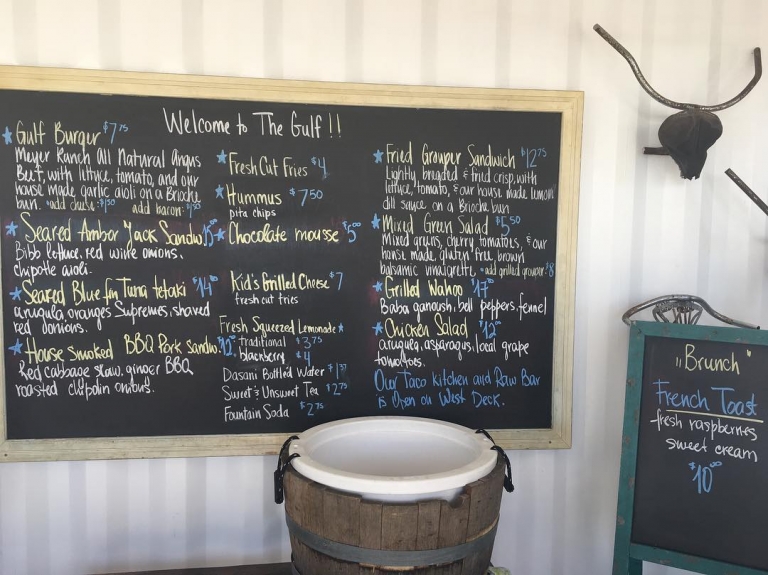 Welcome to The Gulf!!
Gulf Burger $7.75
Meyer Ranch All Natural Angus
Beef, with lettuce, tomato, and our
house made garlic aioli on a Brioche
bun. *add cheese $1.50 add bacon $1.50
Seared Amber Jack Sandw.
Bibb lettuce, red wine onions,
chipotle aioli.
Seared Blue fin Tuna tataki $14
arugula, oranges supremes, shaved
red onions.
House Smoked BBQ Pork Sandw.
Red cabbage slaw, ginger BBQ
roasted onions.
Fresh Cut Fries $4
Hummus $7.50
pita chips
Chocolate mousse $5.00
Kid's Grilled Cheese $7
fresh cut fries
Fresh Squeezed Lemonade
traditional $3.75
blackberry $4
Dasani Bottled Water
Sweet & Unsweet Tea $2.75
Fountain Soda $2.75
Fried Grouper Sandwich $12.75
Lightly breaded & fried crisp, with
lettuce, tomato, & our house made lemon
dill sauce on a Brioche bun
Mixed Green Salad $5.50
Mixed greens, cherry tomatoes, & our
house made, gluten free, brown
balsamic vinaigrette *add grilled grouper $8
Grilled Wahoo $17.00
Baba ganoush, bell peppers, fennel
Chicken Salad $12.00
arugula, asparagus, local grape
tomatoes.
Our Taco Kitchen and Raw Bar
is Open on West Deck.
"Brunch"
French Toast
fresh raspberries
sweet cream
$10.00